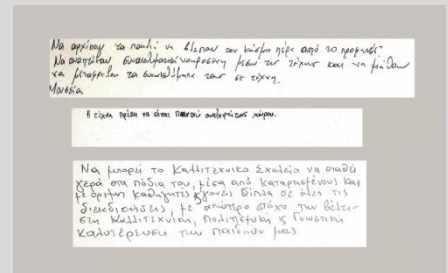 Να αρχίσουν τα παιδιά να βλέπουν τον κόσμο πέρα από το προφανές
Να αναπτύξουν συναισθηματική νοημοσύνη μέσω των τεχνών και να μάθουν
να μετατρέπουν τα συναισθήματα τους σε τέχνη.
Η τέχνη πρέπει να είναι παντού ανεξαρτήτως χώρου.
Να μπορεί το Καλλιτεχνικό Σχολείο να σταθεί
γερά στα πόδια του, μέσα από καταρτισμένους και
με όρεξη καθηγητές & γονείς δίπλα σε όλες τις
διεκδικήσεις, με απώτερο στόχο την βέλτι-
στη Καλλιτεχνική, Πολιτισμική & Γνωστική
καλυτέρευση των παιδιών μας